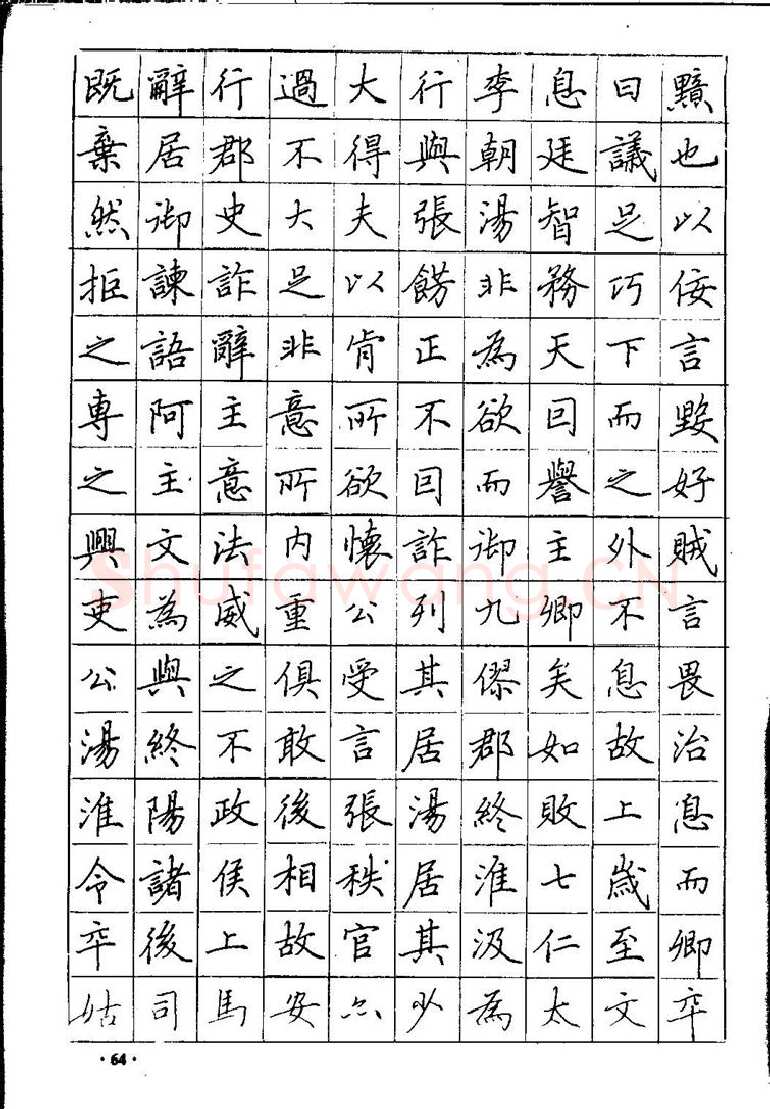 既辭行過大行李息曰黯
棄居郡不得與朝廷議也
然御史大夫張湯智足以
拒諫詐足以餝非務巧佞
之語辭非肯正為天下言
專阿主意所不欲因而毀
之主意所欲因而譽之好
興文法內懷詐御主外賊
吏為威重公列九卿不言
公與之俱受其僇矣息畏
湯終不敢言居郡如故治
淮陽政後張湯終敗上息
令諸侯相秩居淮七歲而
卒後上故官其汲仁至卿
姑司馬安亦少為太文卒
·64·
Shufawang.CN